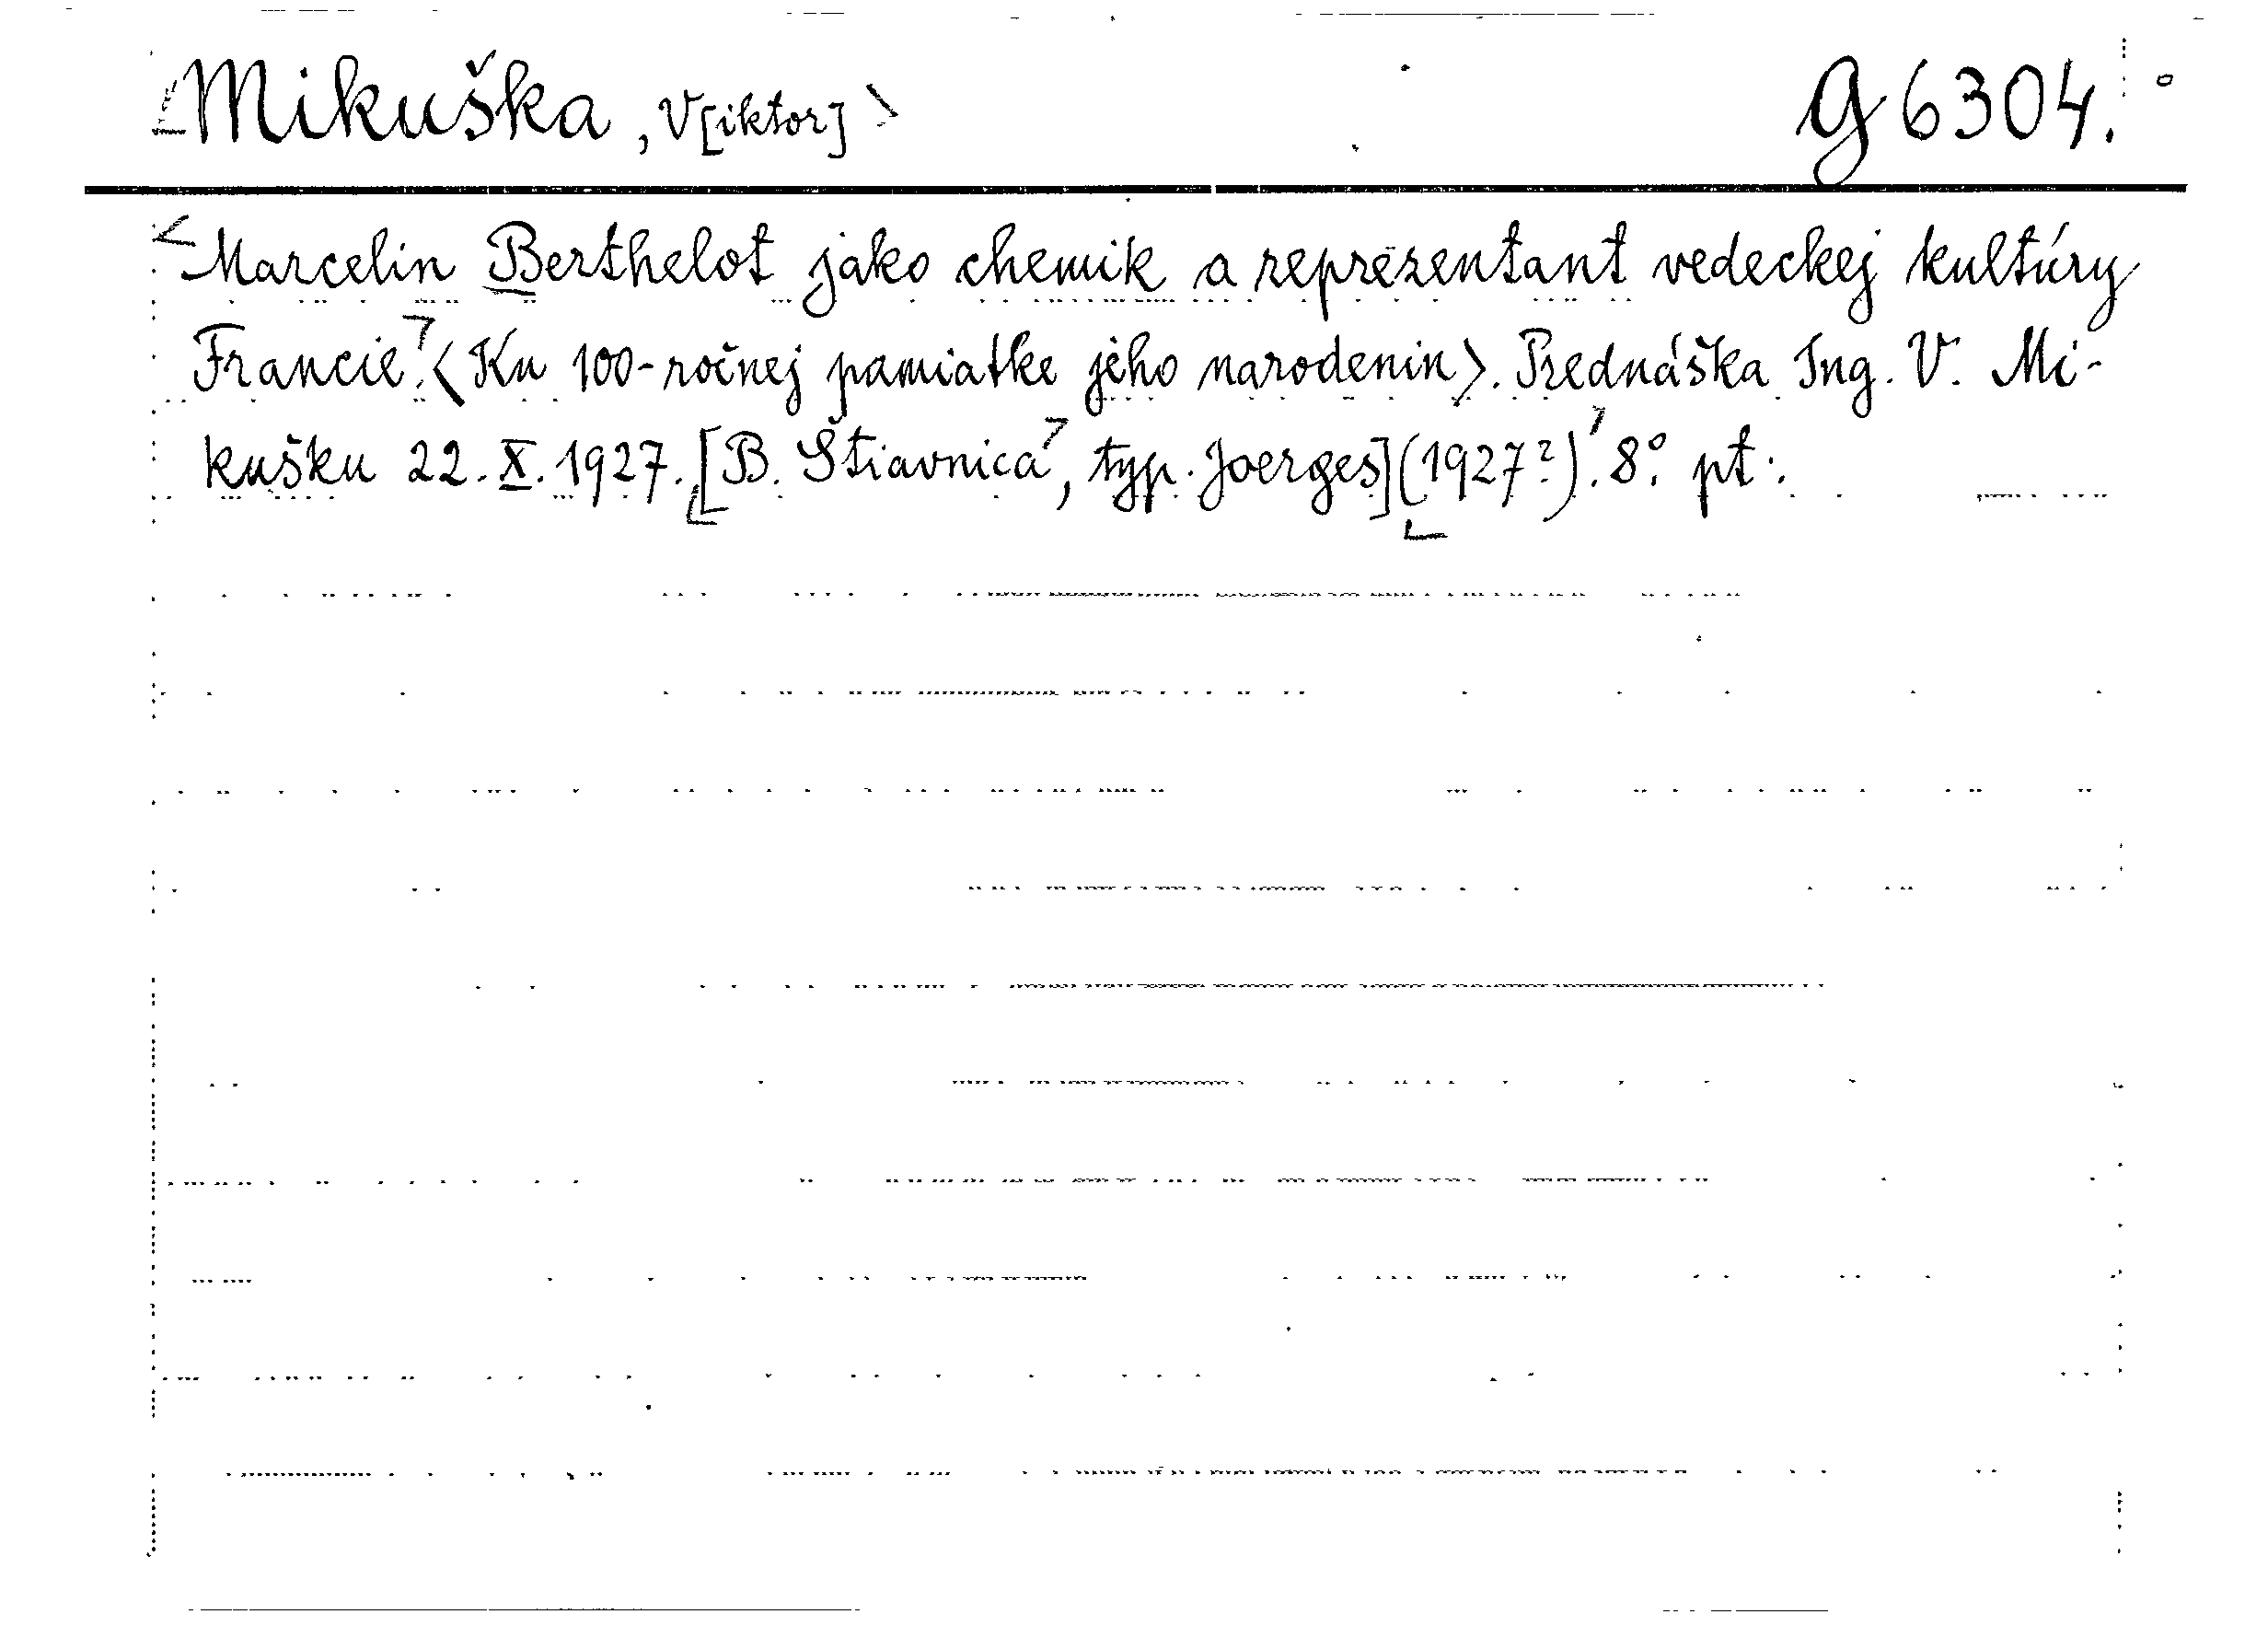 Mikuška, V[iktor] G 6304.
Marcelin Berthelot jako chemik a reprezentant vedeckej kultúry
Francie. <Ku 100-ročnej pamiatke jeho narodenin>. Prednáška Ing. V. Mi-
kušku 22. X. 1927. [B. Štiavnica, typ. Joerges] (1927?). 8°. pt.